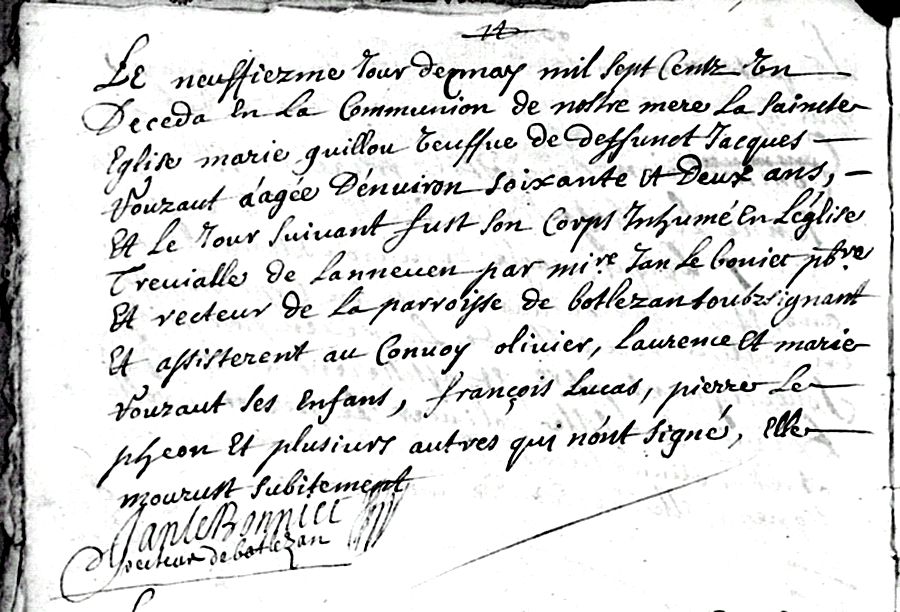 Le neuffiezme Jour de may mil sept Centz Un
Deceda En La Communion de nostre mere La Saincte
Eglise marie guillou Veuffve de deffunct Jacques
Vouzaut áagée D'énuiron soixante Et Deux ans,
Et Le Jour suivant fust son Corps Inhumé En L'église
Trevialle de Lanneuen par mi.re Jan Le boniec pbre
Et recteur de La parroisse de botlezan soubzsignant
Et assisterent au Convoy olivier, Laurence Et marie
Vouzaut ses Enfans, françois Lucas, pierre Le
pheon Et plusiurs autres qui n'ónt signé, Elle
mourust subitement
Jan Le Bonniec
recteur de botlezan